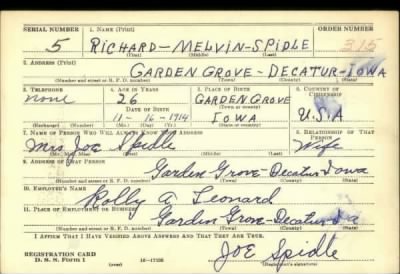 SERIAL NUMBER 1. NAME (Print) ORDER NUMBER
5 RICHARD-MELVIN-SPIDLE 315
(First) (Middle) (Last)
2. ADDRESS (Print)
GARDEN GROVE-DECATUR-IOWA
(Number and street or R. F. D. number) (Town) (County) (State)
3. TELEPHONE 4. AGE IN YEARS 5. PLACE OF BIRTH 6. COUNTRY OF CITIZENSHIP
none 26 GARDEN GROVE
DATE OF BIRTH (Town or county)
11-16-1914 IOWA U.S.A
(Exchange) (Number) (Mo.) (Day) (Yr.) (State or country)
7. NAME OF PERSON WHO WILL ALWAYS KNOW YOUR ADDRESS 8. RELATIONSHIP OF THAT PERSON
Mrs Joe Spidle Wife
(Mr., Mrs., Miss) (First) (Middle) (Last)
9. ADDRESS OF THAT PERSON
Garden Grove-Decatur Iowa
(Number and street or R. F. D. number) (Town) (County) (State)
10. EMPLOYER'S NAME
Rolly A Leonard
11. PLACE OF EMPLOYMENT OR BUSINESS
Garden Grove-Decatur-Ia
(Number and street or R. F. D. number) (Town) (County) (State)
I AFFIRM THAT I HAVE VERIFIED ABOVE ANSWERS AND THAT THEY ARE TRUE.
REGISTRATION CARD
D. S. S. Form 1 (over) 16-17105 Joe Spidle
(Registrant's signature)